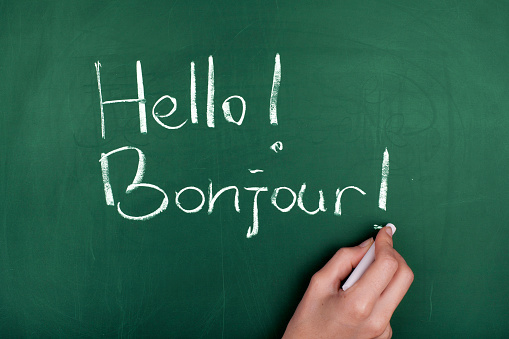 Hello!
Bonjour!